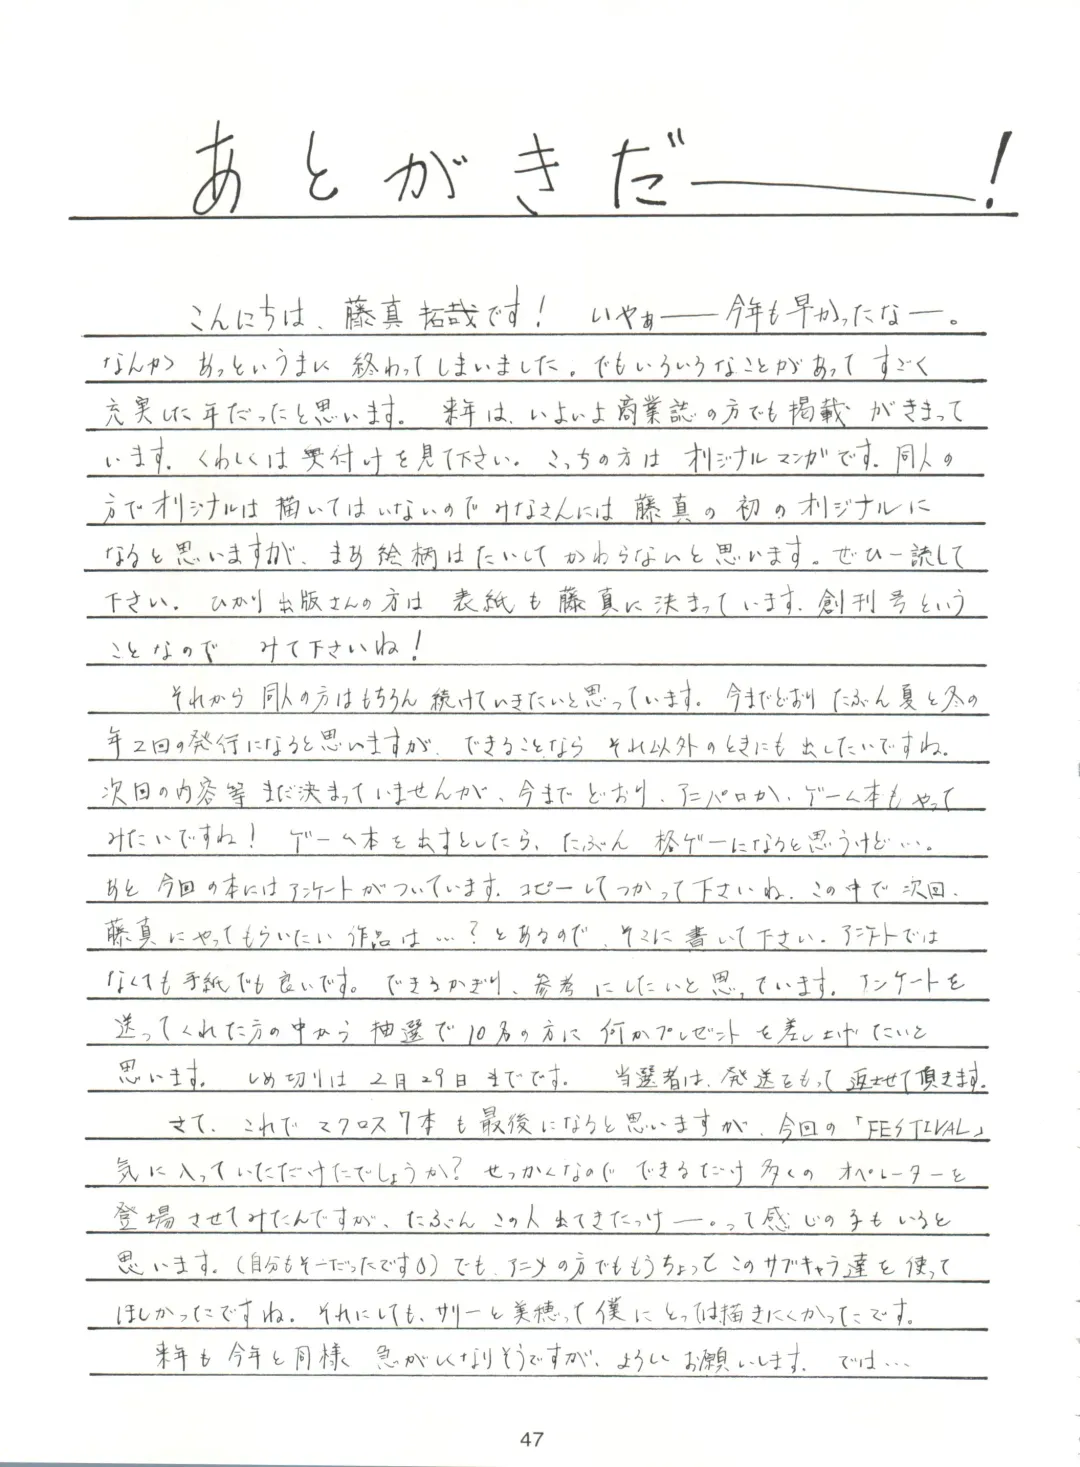 あとがきだー!
こんにちは、藤真拓哉です! いやぁー今年も早かったなー。
なんか あっというまに 終わってしまいました。でもいろいろなことがあって すごく
充実した年だったと思います。 来年は、いよいよ商業誌の方でも掲載がきまって
います。くわしくは奥付けを見て下さい。こっちの方は オリジナルマンガです。同人の
方でオリジナルは描いてはいないのでみなさんには藤真の初のオリジナルに
なると思いますが、まあ絵柄はたいしてかわらないと思います。ぜひ一読して
下さい。 ひかり出版さんの方は 表紙も藤真に決まっています。創刊号という
ことなので みて下さいね!
それから同人の方はもちろん続けていきたいと思っています。今までどおりたぶん夏と冬の
年2回の発行になると思いますが、できることなら それ以外のときにも出したいですね。
次回の内容等まだ決まっていませんが、今までどおり、アニパロか、ゲーム本もやって
みたいですね! ゲーム本を出すとしたら、たぶん 格ゲーになると思うけど…。
あと今回の本にはアンケートがついています。コピーしてつかって下さいね。この中で次回、
藤真にやってもらいたい作品は…?とあるので、そこに書いて下さい。アンケートでは
なくても手紙でも良いです。できるかぎり、参考にしたいと思っています。アンケートを
送ってくれた方の中から抽選で10名の方に何かプレゼントを差し上げたいと
思います。 しめ切りは2月29日までです。 当選者は、発送をもって返させて頂きます。
さて、これでマクロス7本も最後になると思いますが、今回の「FESTIVAL」
気に入っていただけたでしょうか?せっかくなのでできるだけ多くのオペレーターを
登場させてみたんですが、たぶんこの人出てきたっけー。って感じの子もいると
思います。(自分もそーだったです)でも、アニメの方でももうちょっとこのサブキャラ達を使って
ほしかったですね。それにしても、サリーと美穂って僕にとっては描きにくかったです。
来年も今年と同様、急がしくなりそうですが、よろしくお願いします。では…
47